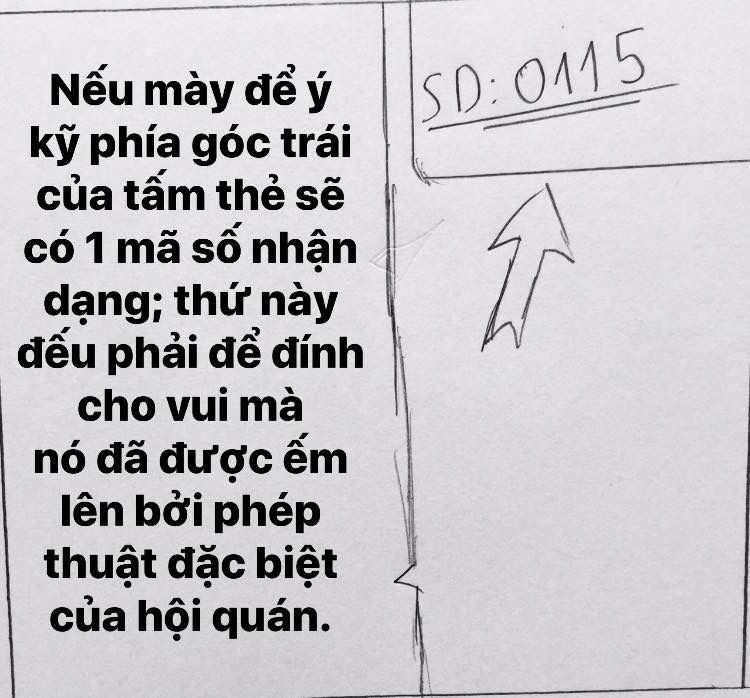 Nếu mày để ý
kỹ phía góc trái
của tấm thẻ sẽ
có 1 mã số nhận
dạng; thứ này
đếu phải để đính
cho vui mà
nó đã được ếm
lên bởi phép
thuật đặc biệt
của hội quán.
SD: 0115